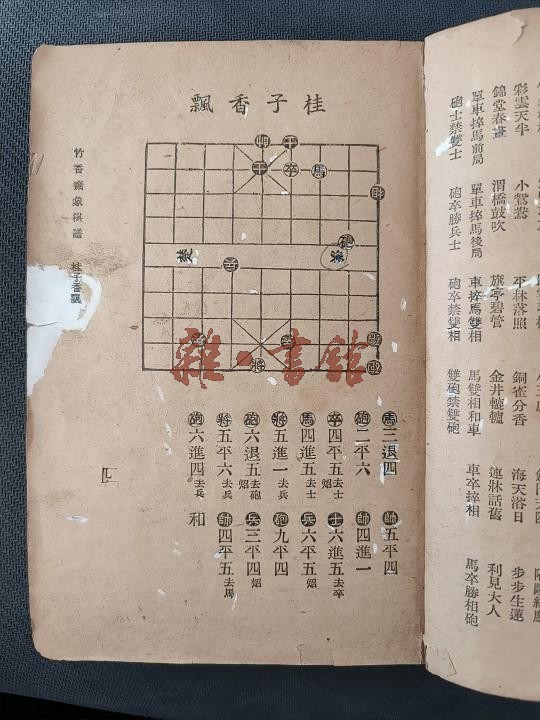 彩雲天半 小鴛鴦 平林落照 銅雀分香 海天浴日 步步生蓮
錦堂春晝 渭橋鼓吹 旗亭碧管 金井轆轤 連牀話舊 利見大人
單車捽馬前局 單車捽馬後局 車捽馬雙相 馬雙相和車 車卒捽相 馬卒勝相砲
砲士禁雙士 砲卒勝兵士 砲卒禁雙相 雙砲禁雙砲
桂子香飄
卒 馬
楚
雜·書舘
馬三退四 帥五平四
砲二平六 帥四進一
卒四平五去士 士六進五去卒
馬四進五去士 兵六平五炤
將五進一去兵 砲九平四
砲六退五去砲炤 兵三平四炤
將五平六去兵 帥四平五去馬
砲六進四去兵 和
竹香齋象棋譜 桂子香飄
四